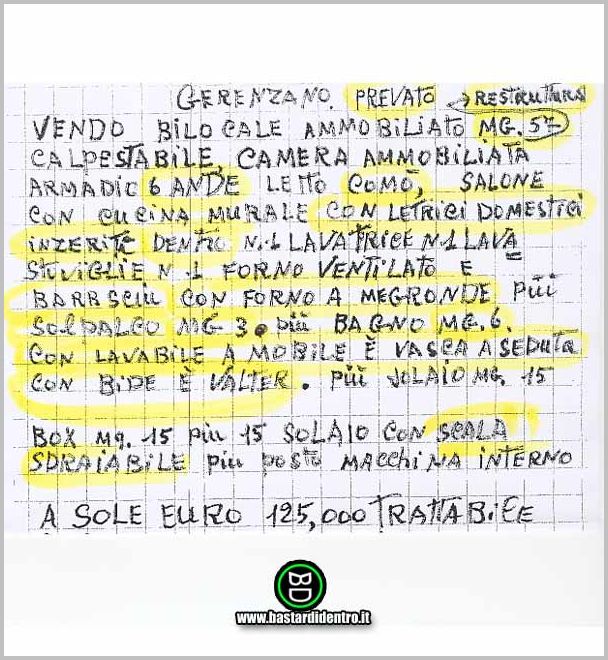 GERENZANO. PREVATO → RESTRUTURA
VENDO BILOCALE AMMOBILIATO MG. 57
CALPESTABILE, CAMERA AMMOBILIATA
ARMADIO 6 ANDE LETTO COMÒ, SALONE
CON CUCINA MURALE CON LETRICI DOMESTICI
INZERITE DENTRO N.1 LAVATRICE N.1 LAVA
STUVIGLIE N.1 FORNO VENTILATO E
BARBSCIU CON FORNO A MEGRONDE PIÙI
SOLPALCO MG 3. PIÙ BAGNO MG. 6.
CON LAVABILE A MOBILE È VASCA A SEDUTA
CON BIDE È VALTER. PIÙI SOLAIO MG. 15
BOX MQ. 15 PIÙ 15 SOLAIO CON SCALA
SDRAIABILE PIÙ POSTO MACCHINA INTERNO
A SOLE EURO 125,000 TRATTABILE
BD
www.bastardidentro.it